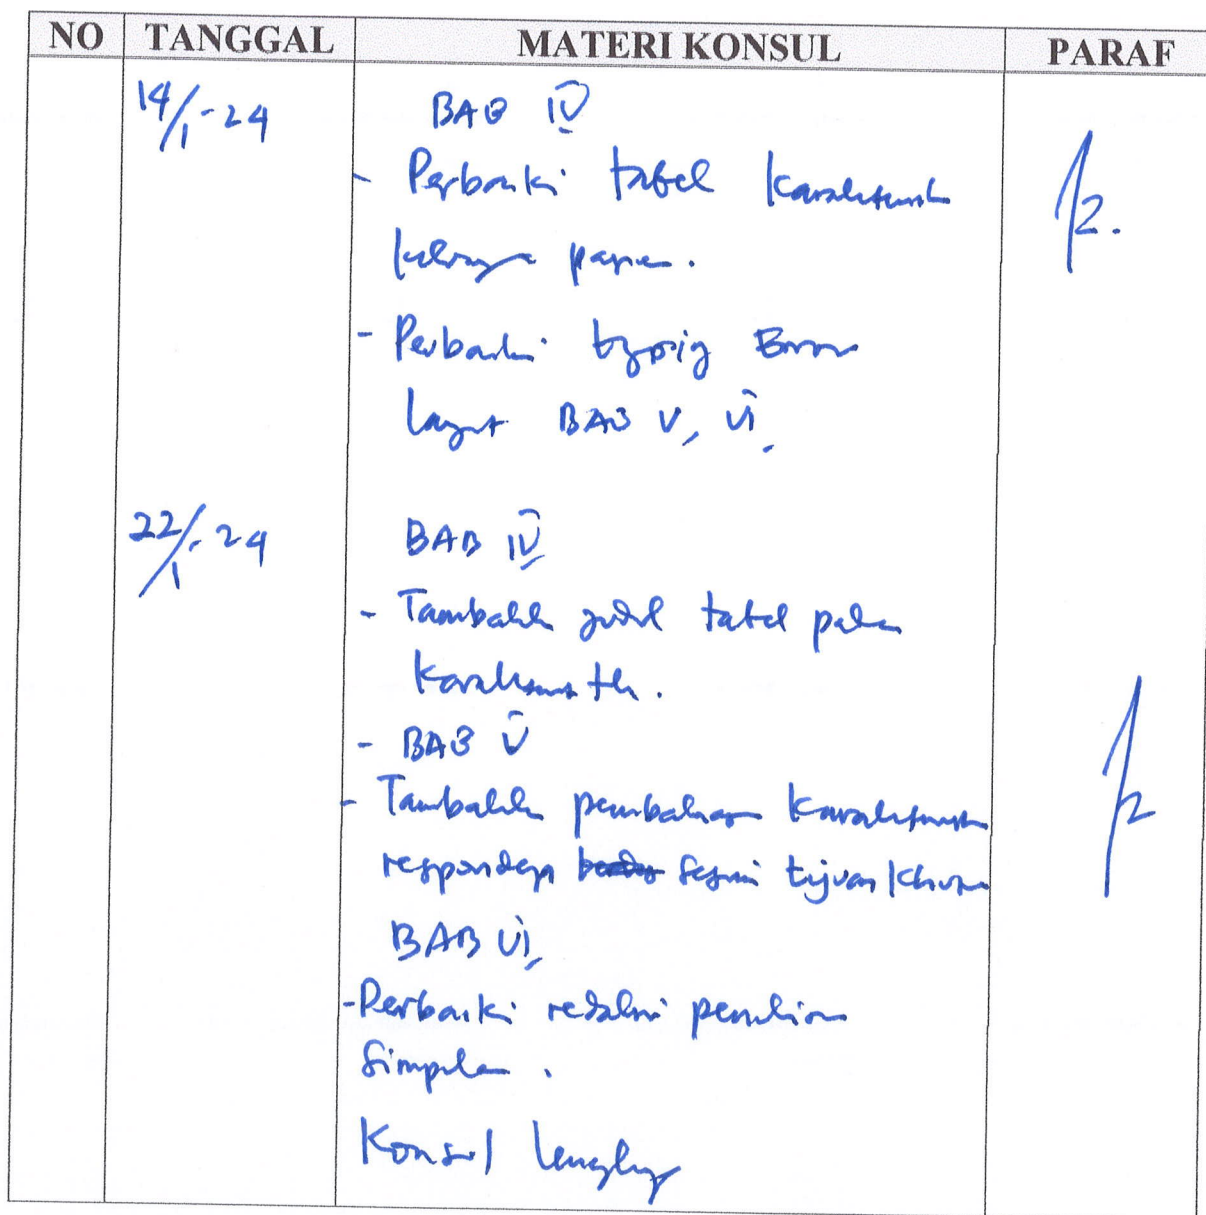 NO TANGGAL MATERI KONSUL PARAF
14/1-24 BAB IV
- Perbaiki tabel Karakteristik
keluarga pasien.
- Perbaiki typing Error
Lanjut BAB V, VI,
22/1-24 BAB IV
- Tambahkan judul tabel pada
Karakteristik.
- BAB V
- Tambahkan pembahasan Karakteristik
responden sesuai tujuan khusus
BAB VI,
- Perbaiki redaksi penulisan
Simpulan.
Konsul lengkap